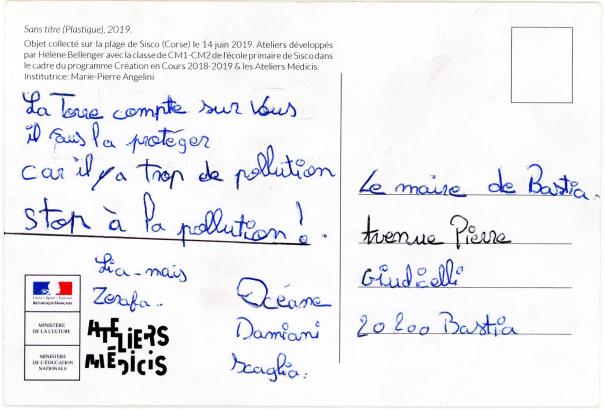 Sans titre (Plastique), 2019.
Objet collecté sur la plage de Sisco (Corse) le 14 juin 2019. Ateliers développés
par Hélène Bellenger avec la classe de CM1-CM2 de l'école primaire de Sisco dans
le cadre du programme Création en Cours 2018-2019 & les Ateliers Médicis.
Institutrice: Marie-Pierre Angelini
La Terre compte sur vous
il faus la protéger
car il y a trop de pollution
stop à la pollution !
Lia-maïs
Zerafa..
Océane
Damiani
Scaglia.
Le maire de Bastia.
Avenue Pierre
Giudicelli
20200 Bastia
Liberté • Égalité • Fraternité
RÉPUBLIQUE FRANÇAISE
MINISTÈRE
DE LA CULTURE
MINISTÈRE
DE L'ÉDUCATION
NATIONALE
ATELIERS
MÉDICIS